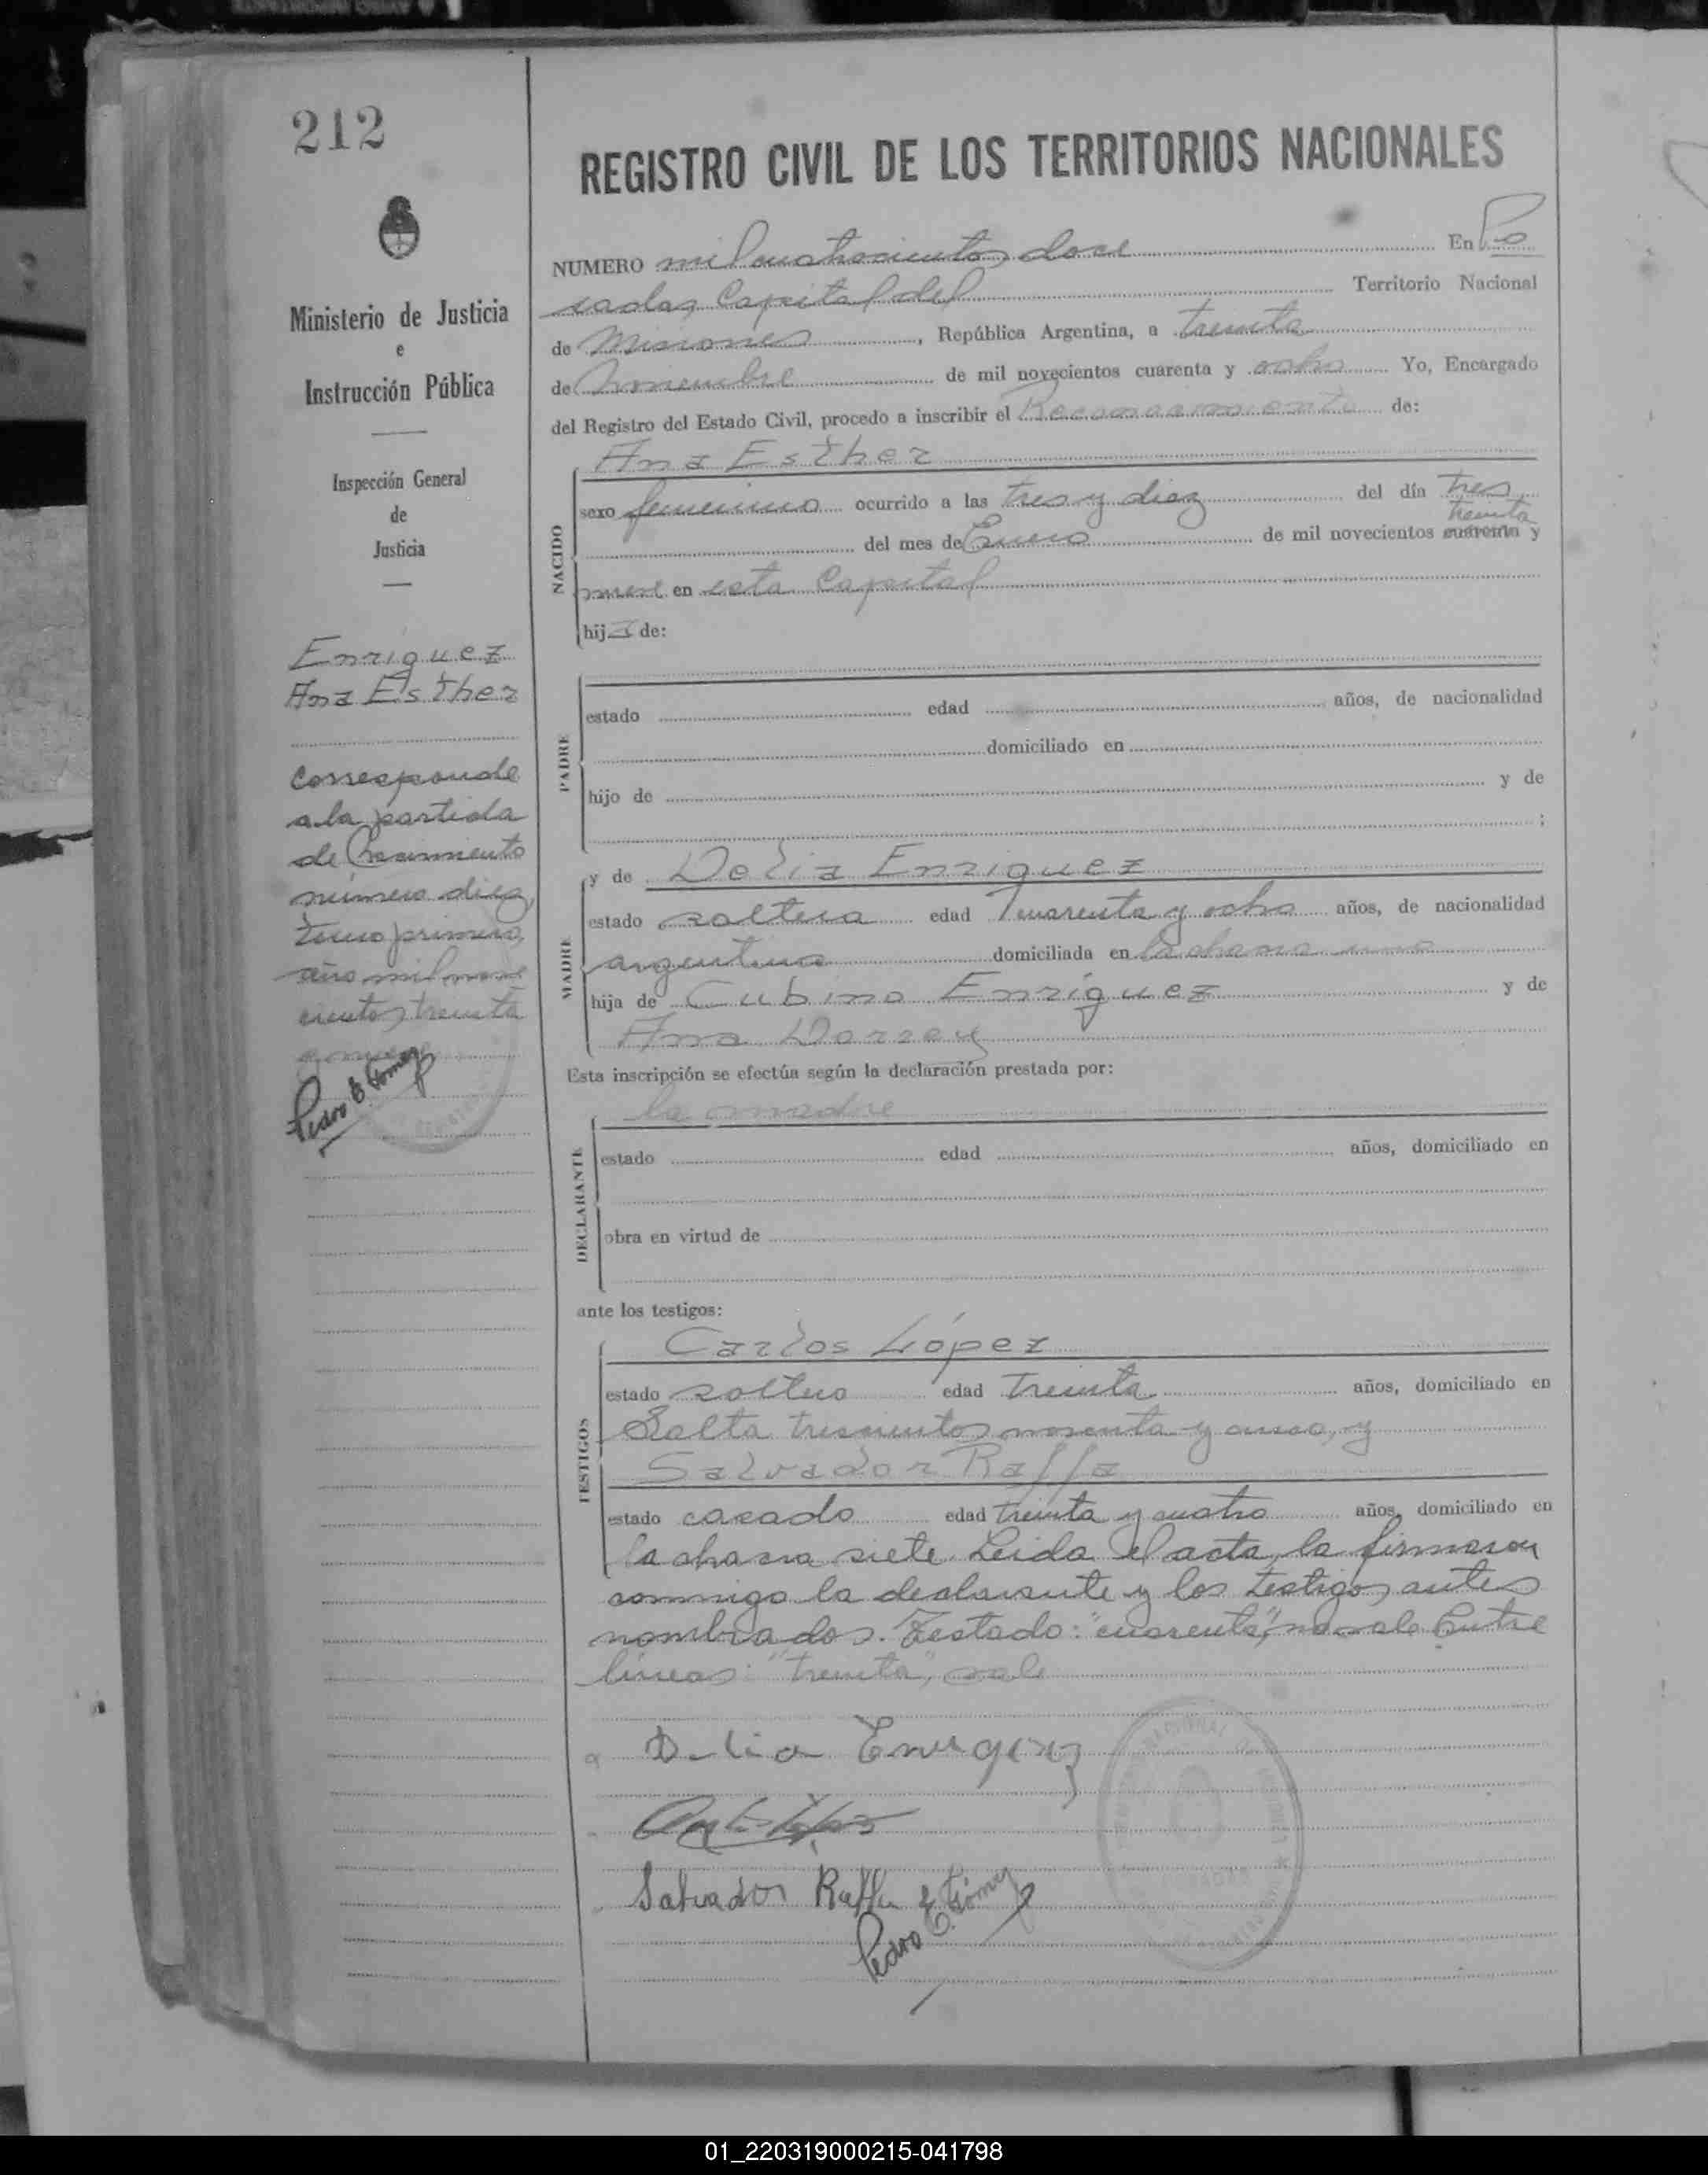 212
REGISTRO CIVIL DE LOS TERRITORIOS NACIONALES
NUMERO mil cuatrocientos doce En Po
sadas, Capital del Territorio Nacional
de Misiones, República Argentina, a treinta
de Noviembre de mil novecientos cuarenta y ocho Yo, Encargado
del Registro del Estado Civil, procedo a inscribir el Reconocimiento de:
Ana Esther
sexo femenino ocurrido a las tres y diez del día tres
treinta
del mes de Enero de mil novecientos cuarenta y
nueve en esta Capital
hija de:
NACIDO
estado edad años, de nacionalidad
domiciliado en
hijo de y de
;
PADRE
y de Delia Enriquez
estado soltera edad cuarenta y ocho años, de nacionalidad
argentina domiciliada en la chacra uno
hija de Cubino Enríquez y de
Ana Dorrey
MADRE
Esta inscripción se efectúa según la declaración prestada por:
la madre
estado edad años, domiciliado en
obra en virtud de
DECLARANTE
ante los testigos:
Carlos López
estado soltero edad treinta años, domiciliado en
Salta trescientos noventa y cinco, y
Salvador Raffa
estado casado edad treinta y cuatro años, domiciliado en
la chacra siete. Leida el acta, la firmaron
TESTIGOS
conmigo la declarante y los testigos antes
nombrados. Testado: "cuarenta", no vale Entre
líneas: "treinta", vale
Delia Enriquez
Salvador Raffa
Pedro E. Gómez
Ministerio de Justicia
e
Instrucción Pública
Inspección General
de
Justicia
Enriquez
Ana Esther
Corresponde
a la partida
de Nacimiento
número diez,
tomo primero,
año mil nove
cientos treinta
y nueve
Pedro E. Gómez
POSADAS
01_220319000215-041798